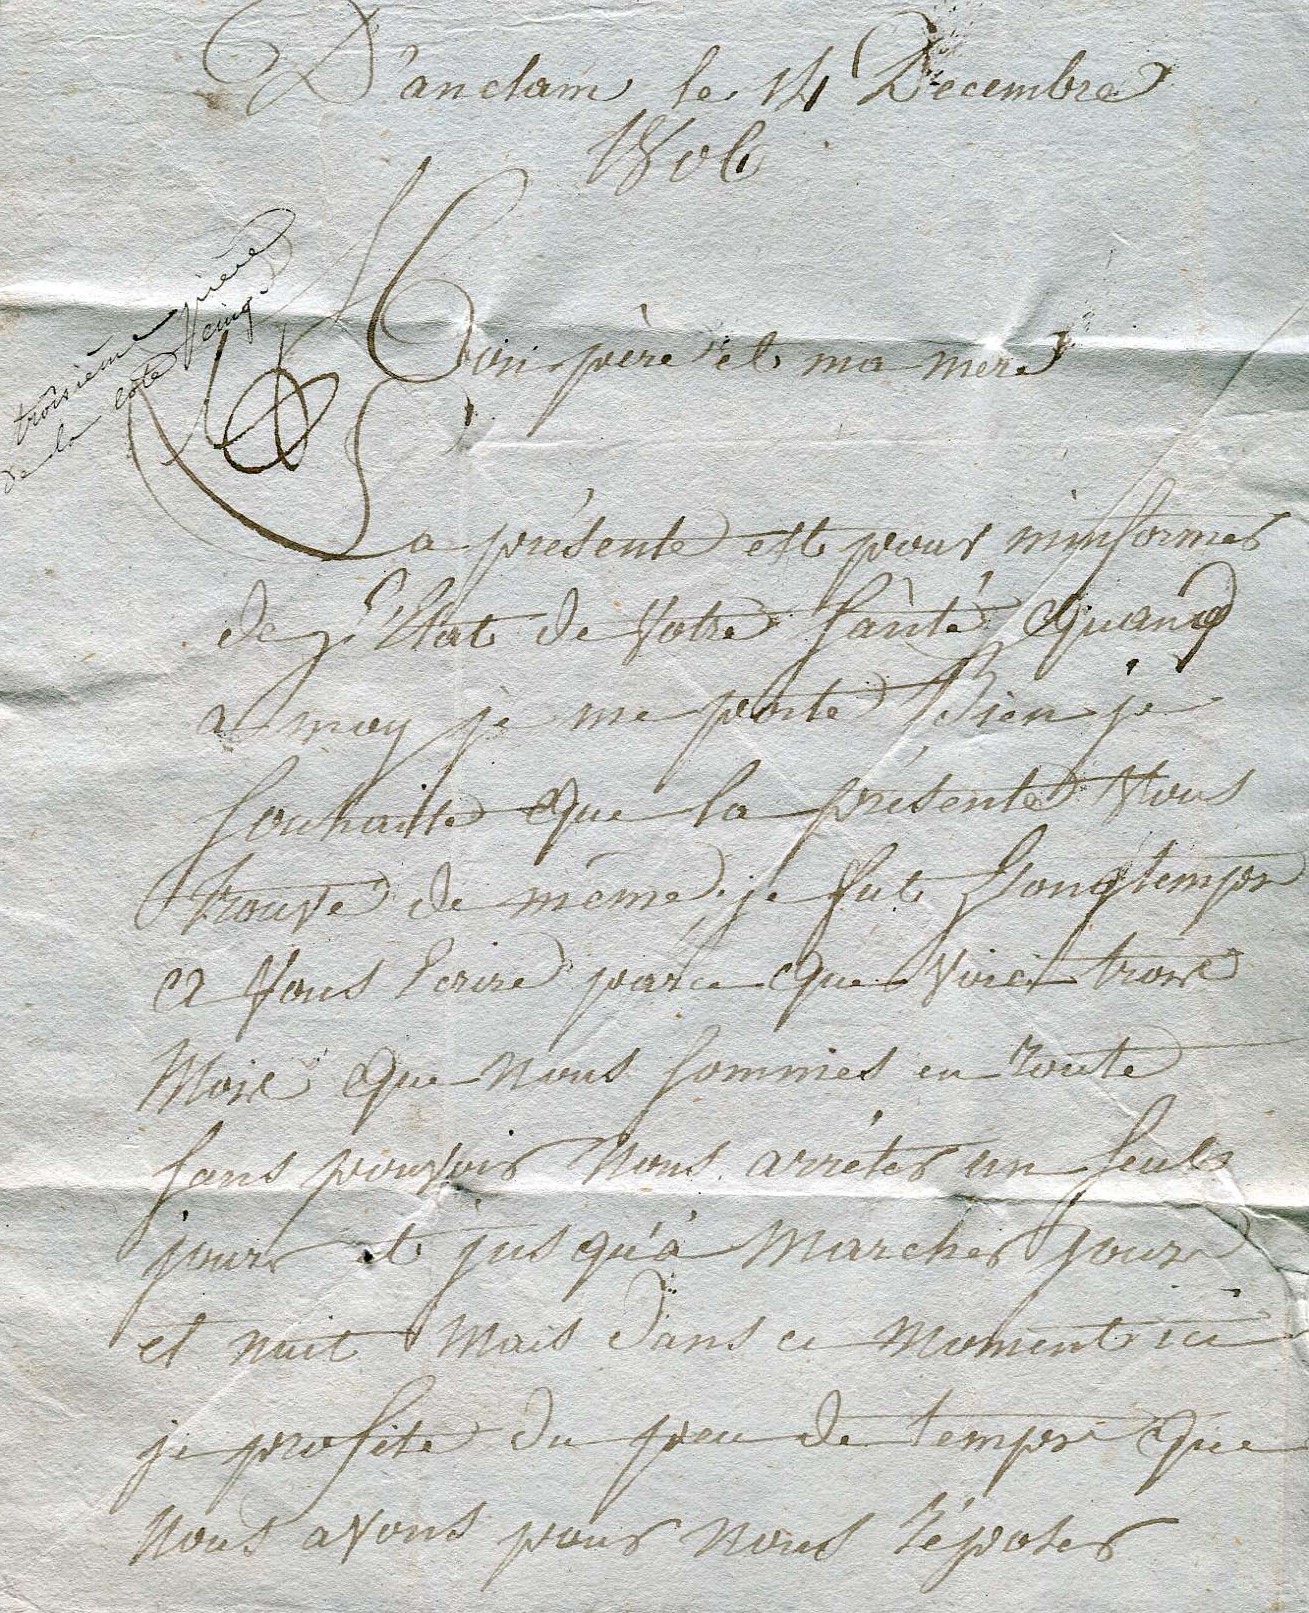 D'anclam le 14 Decembre
1806
troisième pièce
de la cote cinq
Mon père et ma mere
La présente est pour m'informer
de l'Etat de Votre Santé Quand
a moy je me porte Bien je
souhaite que la présente Vous
trouve de même. je fut Longtemps
a Vous Ecrire parce que Voici trois
Mois que Nous sommes en route
sans pouvoir Nous arréter un seul
jour et jusqu'à Marcher Jour
et nuit Mais dans ce Moment ici
je profite du peu de temps que
Nous avons pour Nous réposer